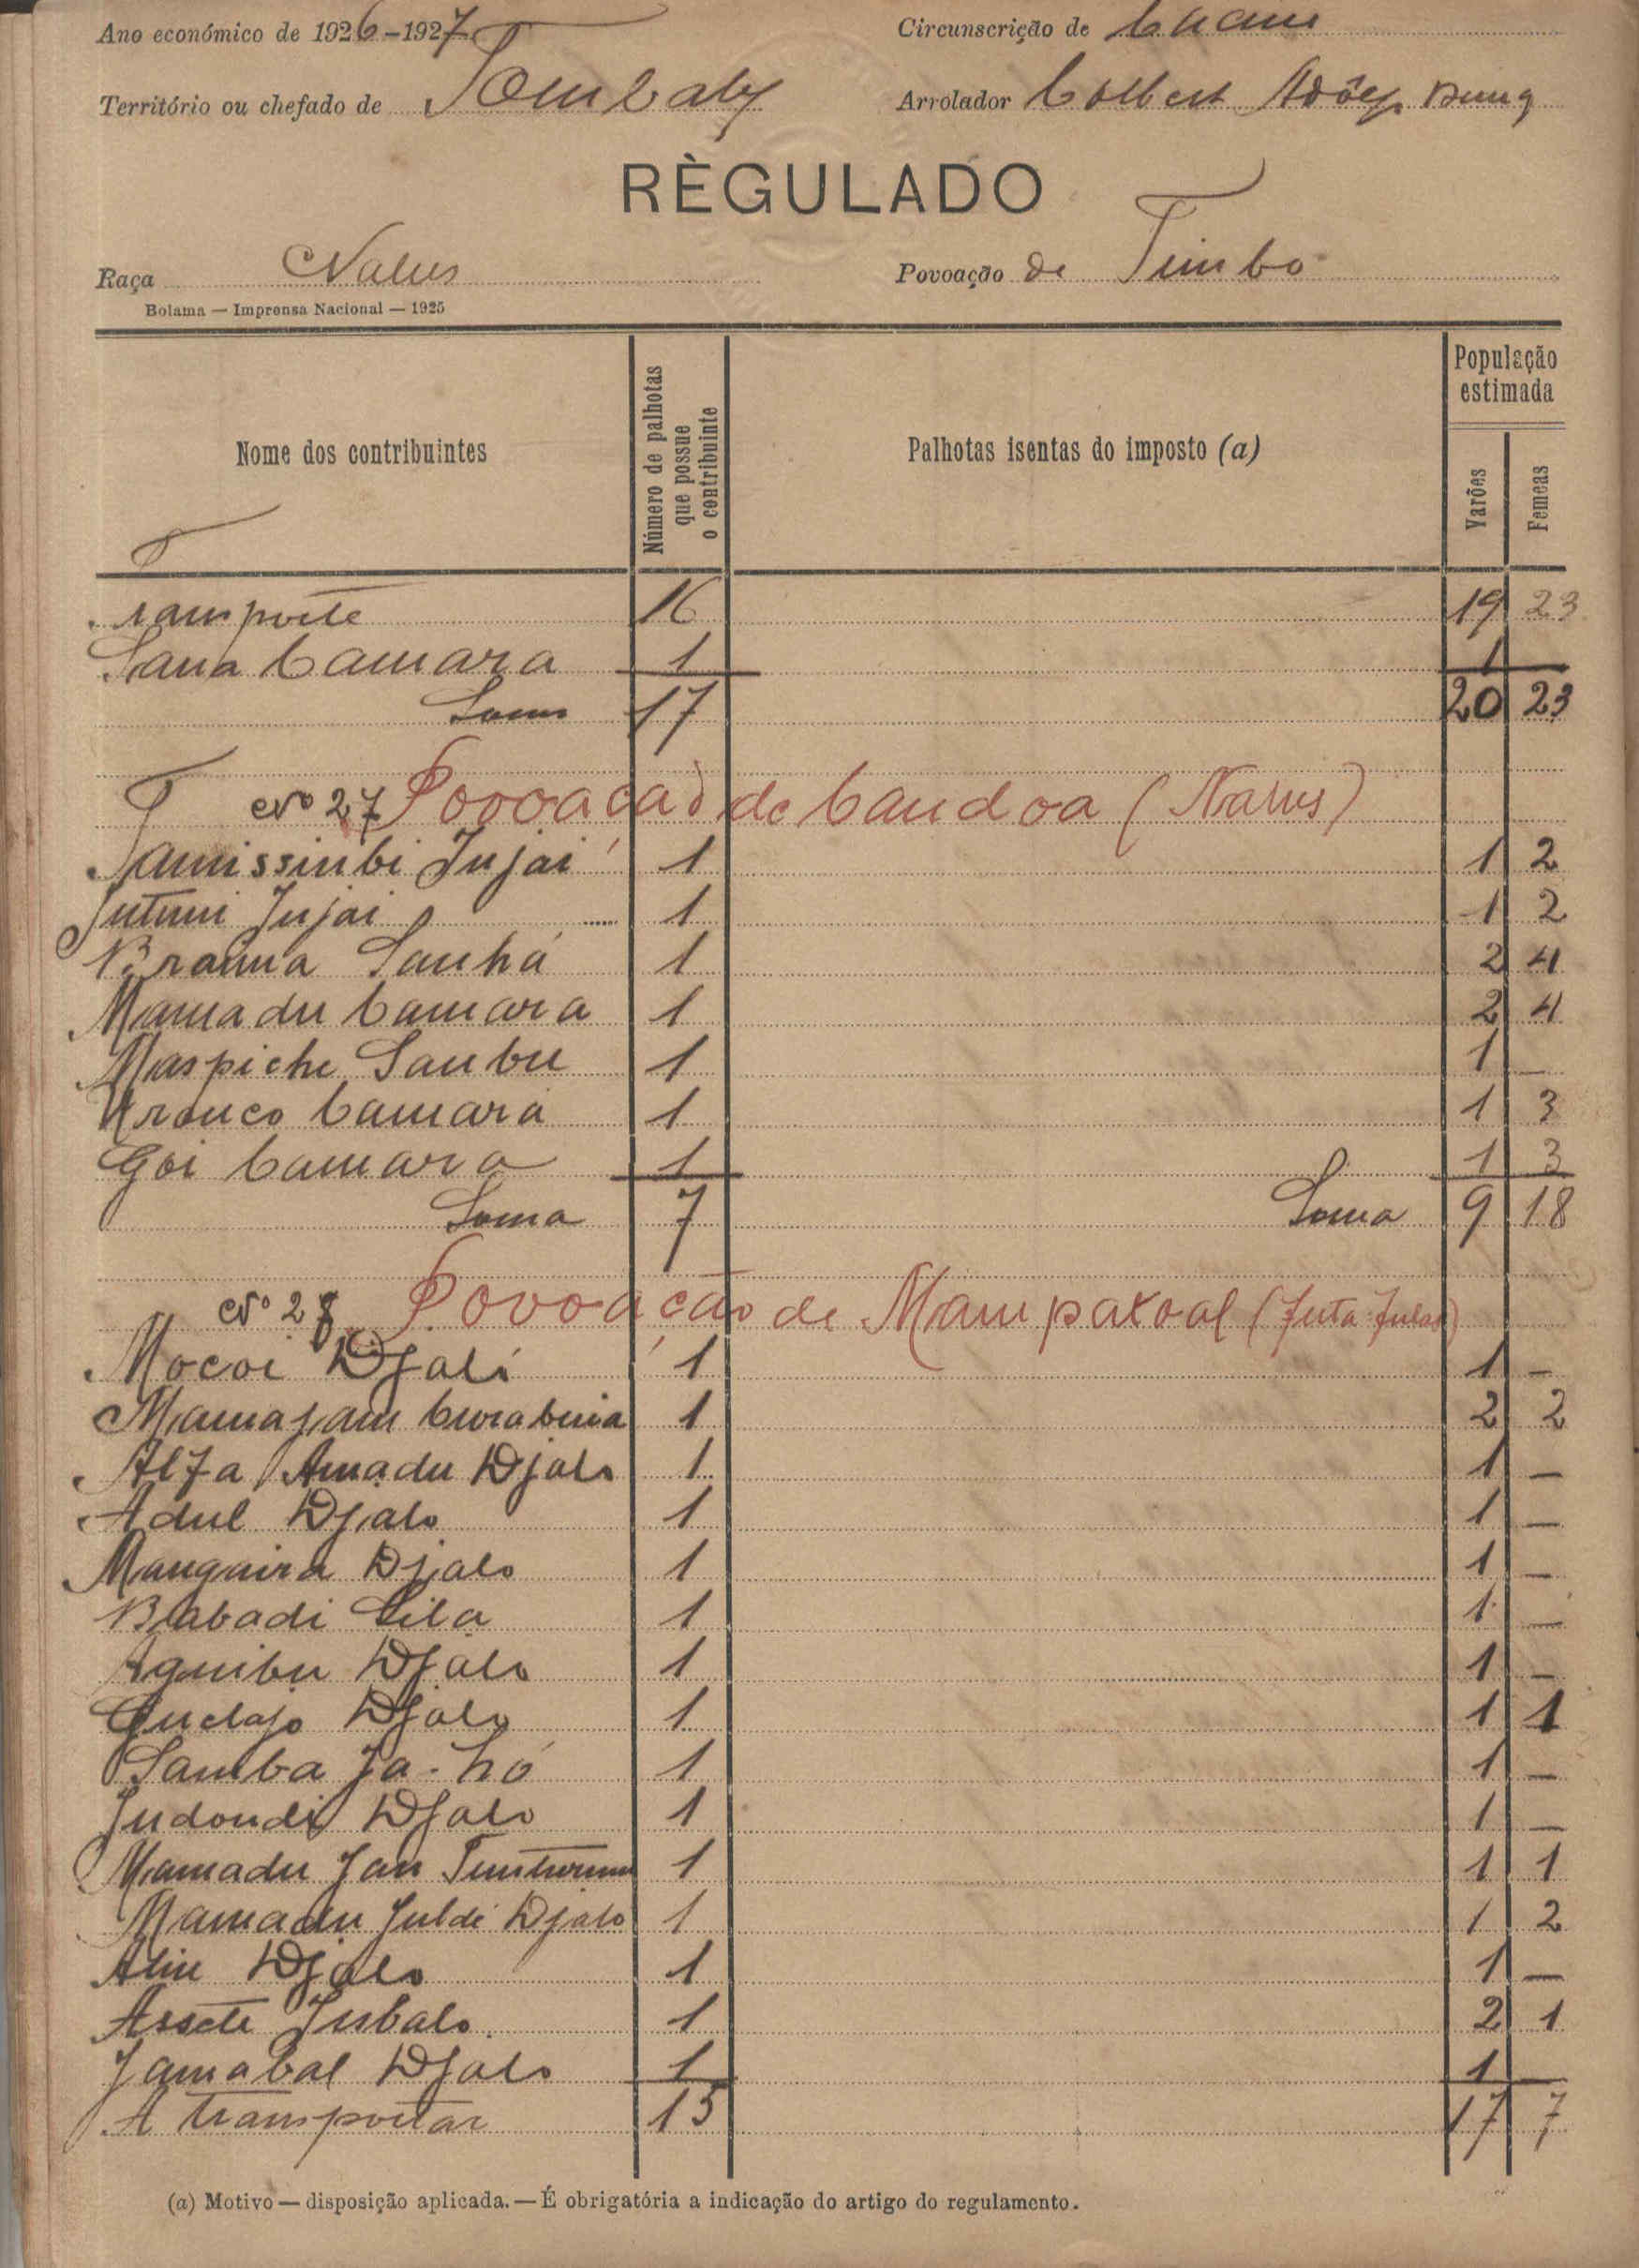 Ano económico de 1926-1927 Circunscrição de
Território ou chefado de Tombaly Arrolador
RÈGULADO
Raça Nalus Povoação de Timbo
Bolama — Imprensa Nacional — 1925
Nome dos contribuintes Número de palhotas que possue o contribuinte Palhotas isentas do imposto (a) População estimada Varões Femeas
Transporte 16 19 23
Sana Camara 1 1 —
Soma 17 20 23
Nº 27 Povoação de Candoa (Nalus)
Injai 1 1 2
Injai 1 1 2
Braima Sanhá 1 2 4
Mamadu Camara 1 2 4
Maspiche Sambu 1 1 —
Camara 1 1 3
Goi Camara 1 1 3
Soma 7 Soma 9 18
Nº 28 Povoação de Mampatoal (Futa-Fulas)
Mocoi Djaló 1 1 —
1 2 2
Alfa Amadu Djalo 1 1 —
Adul Djalo 1 1 —
Mangaira Djalo 1 1 —
Babadi Sila 1 1 —
Aguibu Djalo 1 1 —
Djalo 1 1 1
Samba Ja-hó 1 1 —
Djalo 1 1 —
Mamadu Jan 1 1 1
Mamadu Juldé Djalo 1 1 2
Aliu Djalo 1 1 —
Jubalo 1 2 1
Jamabal Djalo 1 1 —
A transportar 15 17 7
(a) Motivo — disposição aplicada. — É obrigatória a indicação do artigo do regulamento.